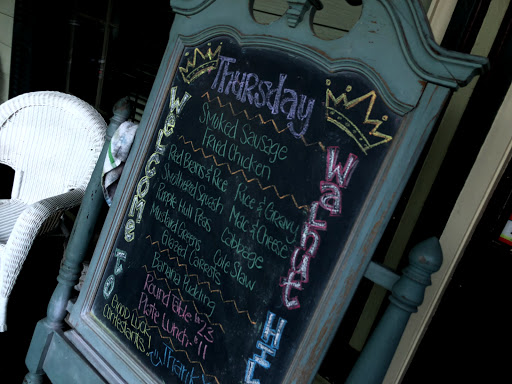 Thursday
Smoked Sausage
Fried Chicken
Red Beans & Rice
Rice & Gravy
Smothered Squash
Mac & Cheese
Purple Hull Peas
Cabbage
Mustard Greens
Cole Slaw
Glazed Carrots
Banana Pudding
Round Table
Plate Lunch $11
Good Luck
Contestants
Thank
Welcome to
Walnut Hil